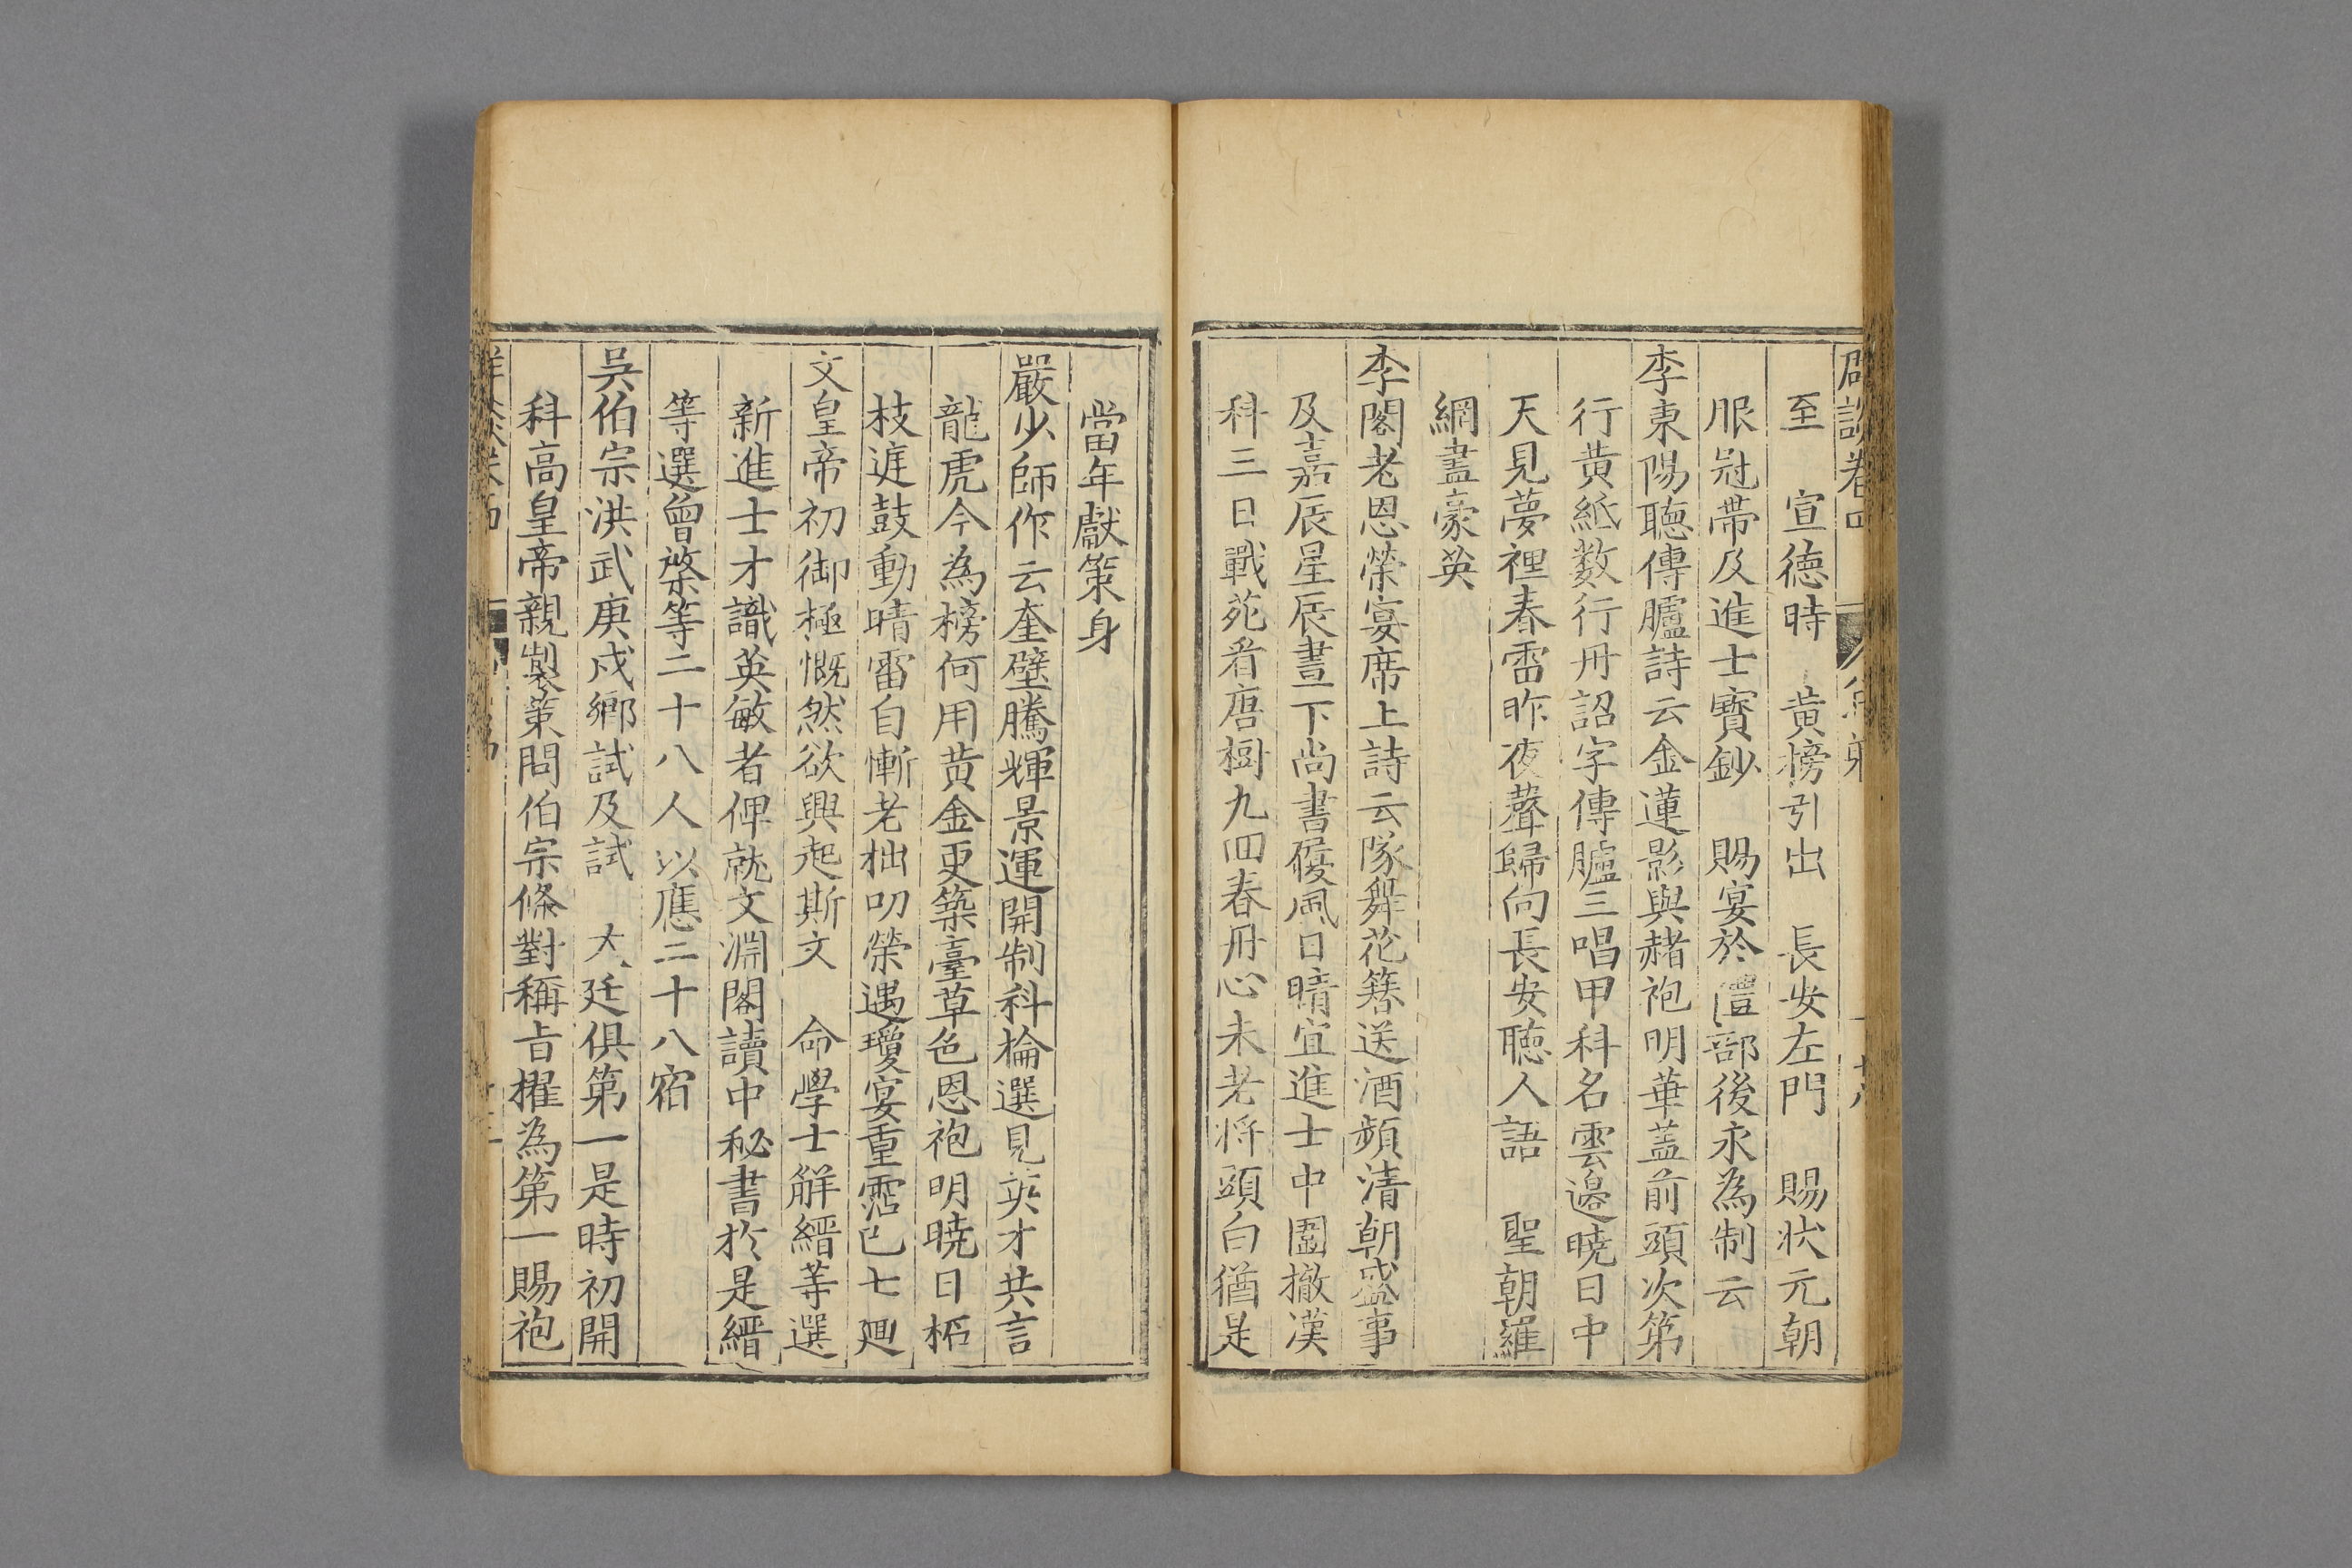 至　宣德時　黄榜引出　長安左門　賜状元朝
服冠帶及進士寳鈔　賜宴於禮部後永為制云
李東陽聽傳臚詩云金蓮影與赭袍明華蓋前頭次第
行黄紙数行丹詔字傳臚三唱甲科名雲邉曉日中
天見夢裡春雷昨夜聲歸向長安聽人語　聖朝羅
網盡豪英
李閣老恩榮宴席上詩云隊舞花簪送酒頻清朝盛事
及嘉辰星辰晝下尚書履風日晴宜進士巾圍撤漢
科三日戰苑看唐樹九回春丹心未老將頭白猶是
當年獻策身
嚴少師作云奎壁騰輝景運開制科掄選見英才共言
龍虎今為榜何用黄金更築臺草色恩袍明曉日桥
枝遅鼓動晴雷自慚老拙叨榮遇瓊宴重霑已七廻
文皇帝初御極慨然欲興起斯文　命學士觧縉等選
新進士才識英敏者俾就文淵閣讀中秘書於是縉
等選曾棨等二十八人以應二十八宿
吳伯宗洪武庚戌鄉試及試　大廷俱第一是時初開
科高皇帝親製策問伯宗條對稱旨擢為第一賜袍